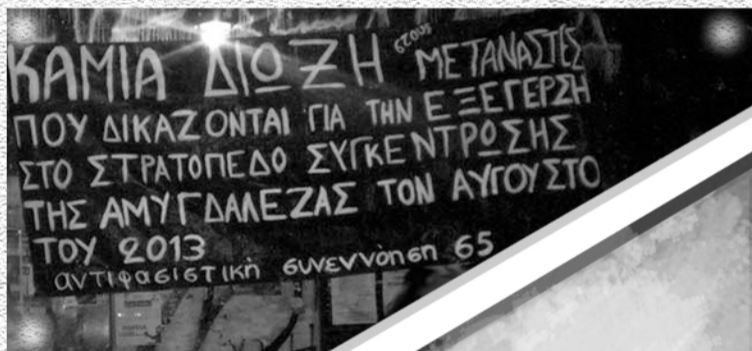 ΚΑΜΙΑ ΔΙΩΞΗ στους ΜΕΤΑΝΑΣΤΕΣ
ΠΟΥ ΔΙΚΑΖΟΝΤΑΙ ΓΙΑ ΤΗΝ ΕΞΕΓΕΡΣΗ
ΣΤΟ ΣΤΡΑΤΟΠΕΔΟ ΣΥΓΚΕΝΤΡΩΣΗΣ
ΤΗΣ ΑΜΥΓΔΑΛΕΖΑΣ ΤΟΝ ΑΥΓΟΥΣΤΟ
ΤΟΥ 2013
αντιφασιστική συνεννόηση 65